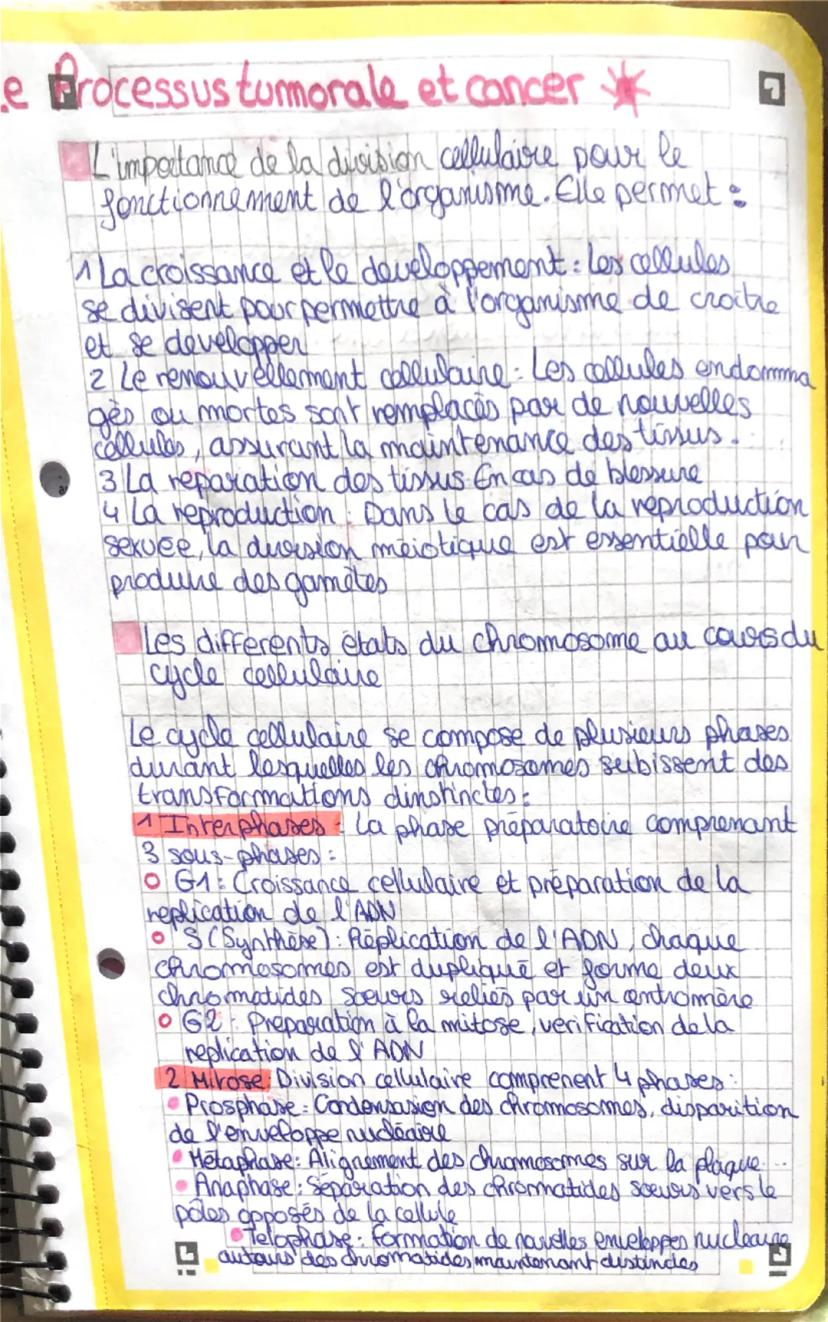 e Processus tumorale et cancer
L'importance de la division cellulaire pour le
fonctionnement de l'organisme. Elle permet :
1 La croissance et le developpement : Les cellules
se divisent pour permettre à l'organisme de croitre
et se developper
2 Le renouvellement cellulaire : Les cellules endomma
gés ou mortes sont remplacés par de nouvelles
cellules, assurant la maintenance des tissus.
3 La reparation des tissus En cas de blessure
4 La reproduction : Dans le cas de la reproduction
sexuée, la division méiotique est essentielle pour
produire des gamètes
Les differents états du chromosome au cours du
cycle cellulaire
Le cycle cellulaire se compose de plusieurs phases
durant lesquelles les chromosomes subissent des
transformations dinstinctes :
1 Interphases : La phase préparatoire comprenant
3 sous-phases :
G1 : Croissance cellulaire et préparation de la
replication de l'ADN
S (Synthèse) : Réplication de l'ADN, chaque
chromosomes est dupliqué et forme deux
chromatides sœurs reliés par un centromère
G2 : Preparation à la mitose, verification de la
replication de l'ADN
2 Mitose : Division cellulaire comprenent 4 phases :
Prosphase : Condensasion des chromosomes, disparition
de l'enveloppe nucléaire
Métaphase : Alignement des chromosomes sur la plaque ...
Anaphase : Séparation des chromatides sœurs vers le
pôles opposés de la cellule
Telophase : Formation de nouvelles enveloppes nucleaire
autours des chromatides maintenant distindes